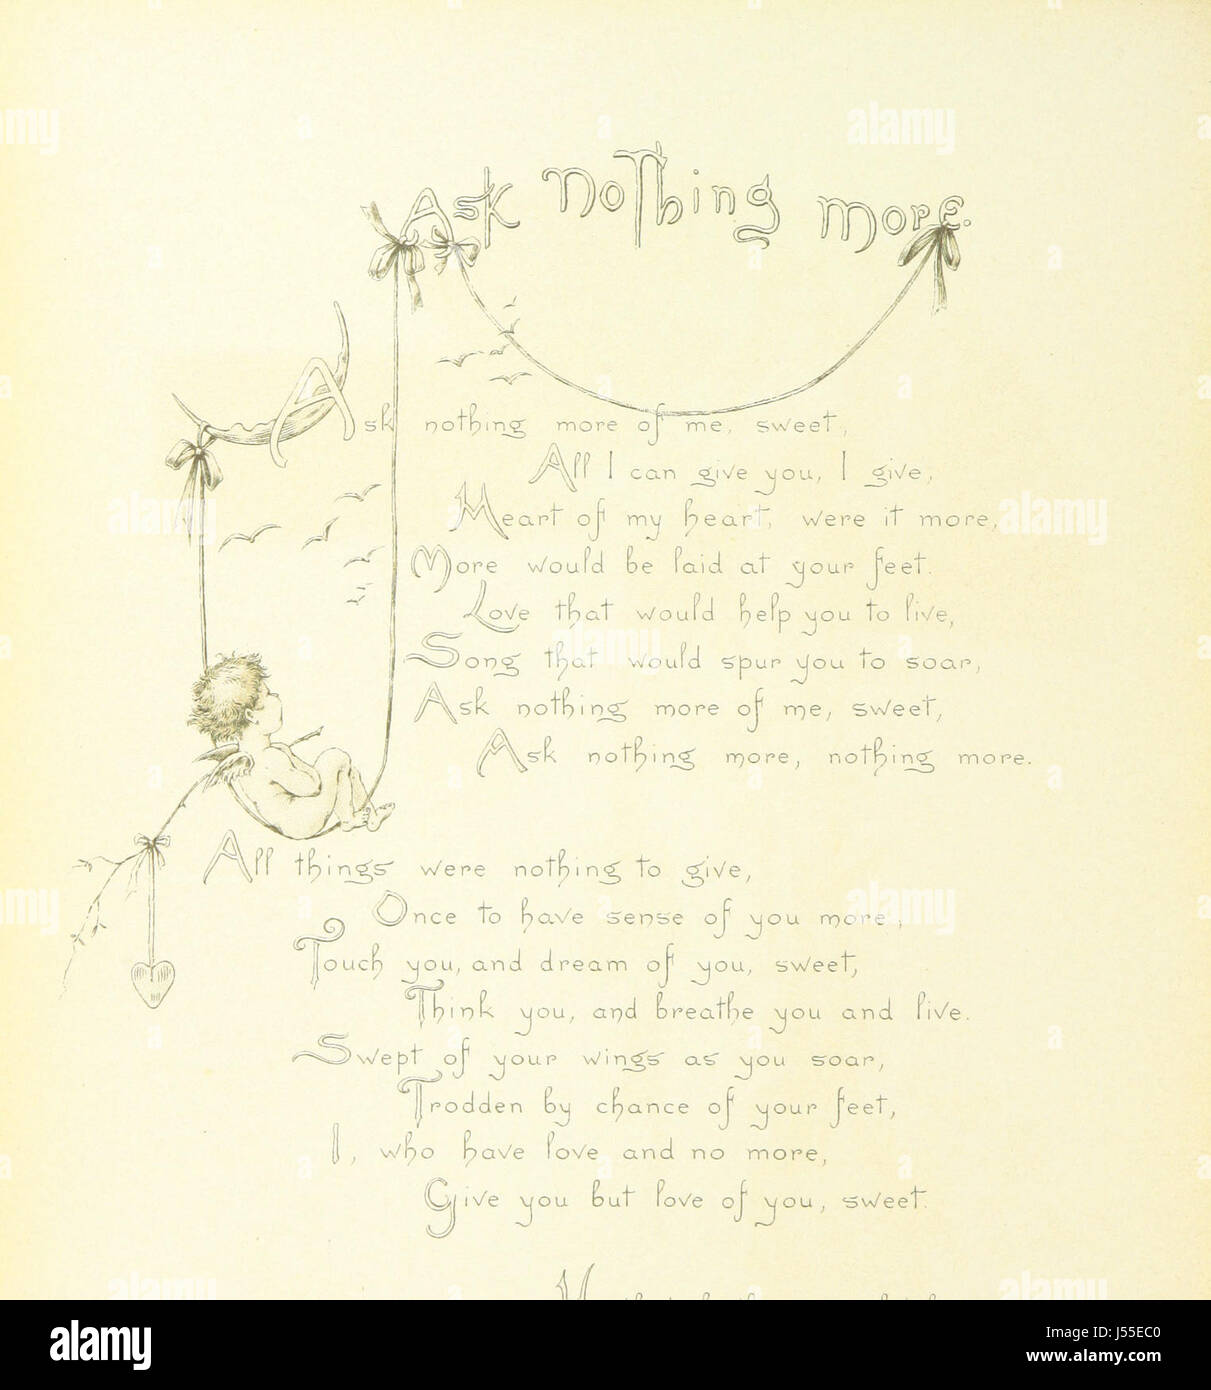 Ask nothing more.
Ask nothing more of me, sweet,
All I can give you, I give,
Heart of my heart, were it more,
More would be laid at your feet.
Love that would help you to live,
Song that would spur you to soar,
Ask nothing more of me, sweet,
Ask nothing more, nothing more.
All things were nothing to give,
Once to have sense of you more,
Touch you, and dream of you, sweet,
Think you, and breathe you and live.
Swept of your wings as you soar,
Trodden by chance of your feet,
I, who have love and no more,
Give you but love of you, sweet.
alamy
Image ID: J55EC0
www.alamy.com